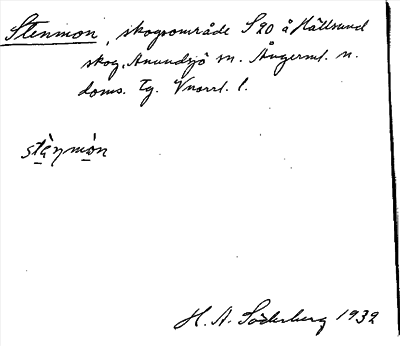 Stenmon, skogsområde S20 å Hällsund
skog, Anundsjö sn. Ångerml. n.
doms. Tg. Vnorrl. l.
stè̱nmò̱n
H. A. Söderberg 1932